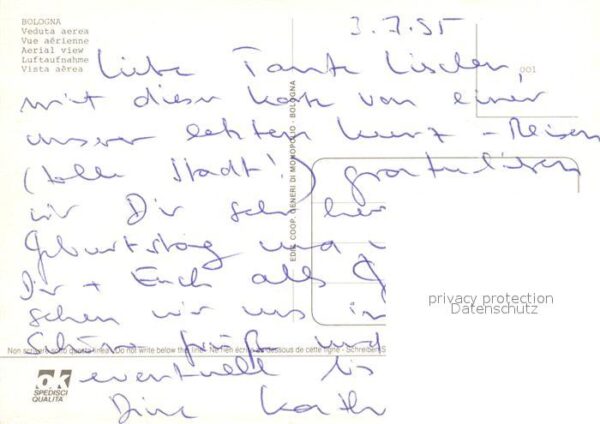 BOLOGNA
Veduta aerea
Vue aérienne
Aerial view
Luftaufnahme
Vista aérea
3.7.95
001
Liebe Tante Lischen,
mit dieser Karte von einer
unserer letzten Kurz-Reisen
(tolle Stadt!) gratulieren
wir Dir sehr her
Geburtstag und
Dir + Euch alles G
sehen wir uns im
Schöne Grüße und
eventuell bis
Deine Kath
EDIZ. COOP. GENERI DI MONOPOLIO - BOLOGNA
Non scrivere sotto questa linea - Do not write below this line - Ne rien écrire au dessous de cette ligne - Schreiben S
ok
SPEDISCI
QUALITA
privacy protection
Datenschutz